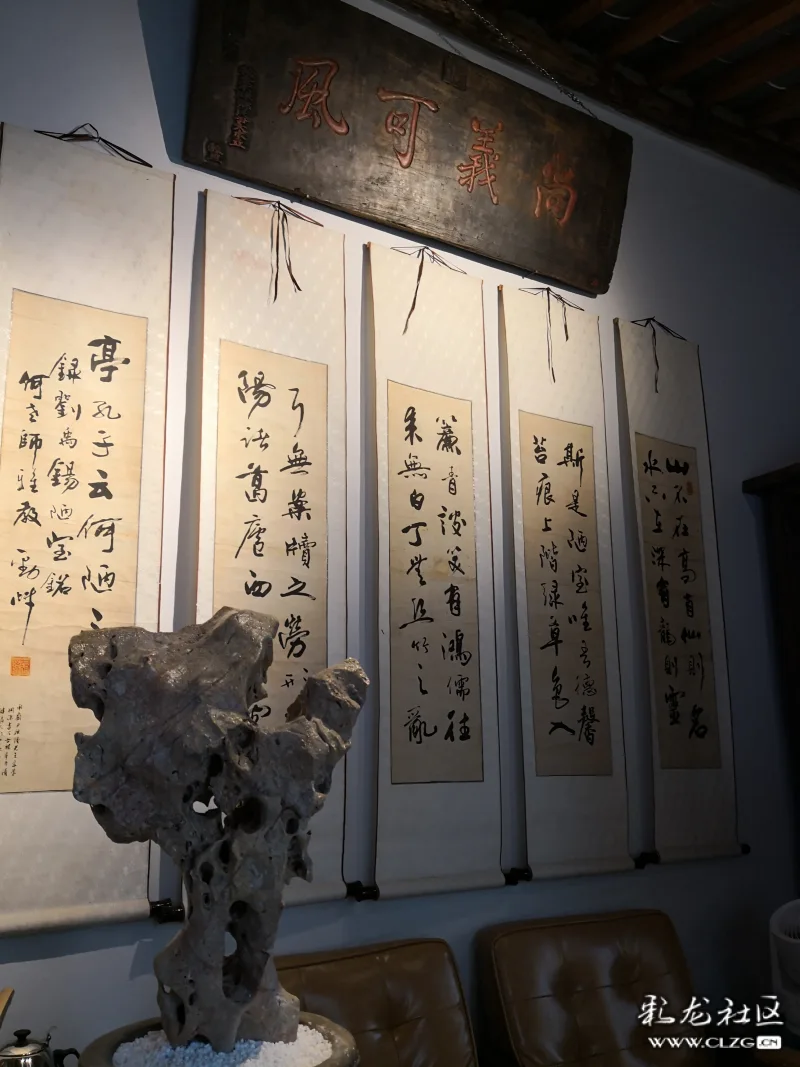 尚義可風
山不在高有仙則名
水不在深有龍則靈
斯是陋室唯吾德馨
苔痕上階緑草色入
簾青談笑有鴻儒往
来無白丁無丝竹之亂
耳無案牘之勞形
陽諸葛廬西
亭孔子云何陋之
録劉禹錫陋室銘
何老師雅教
彩龙社区
WWW.CLZG.CN